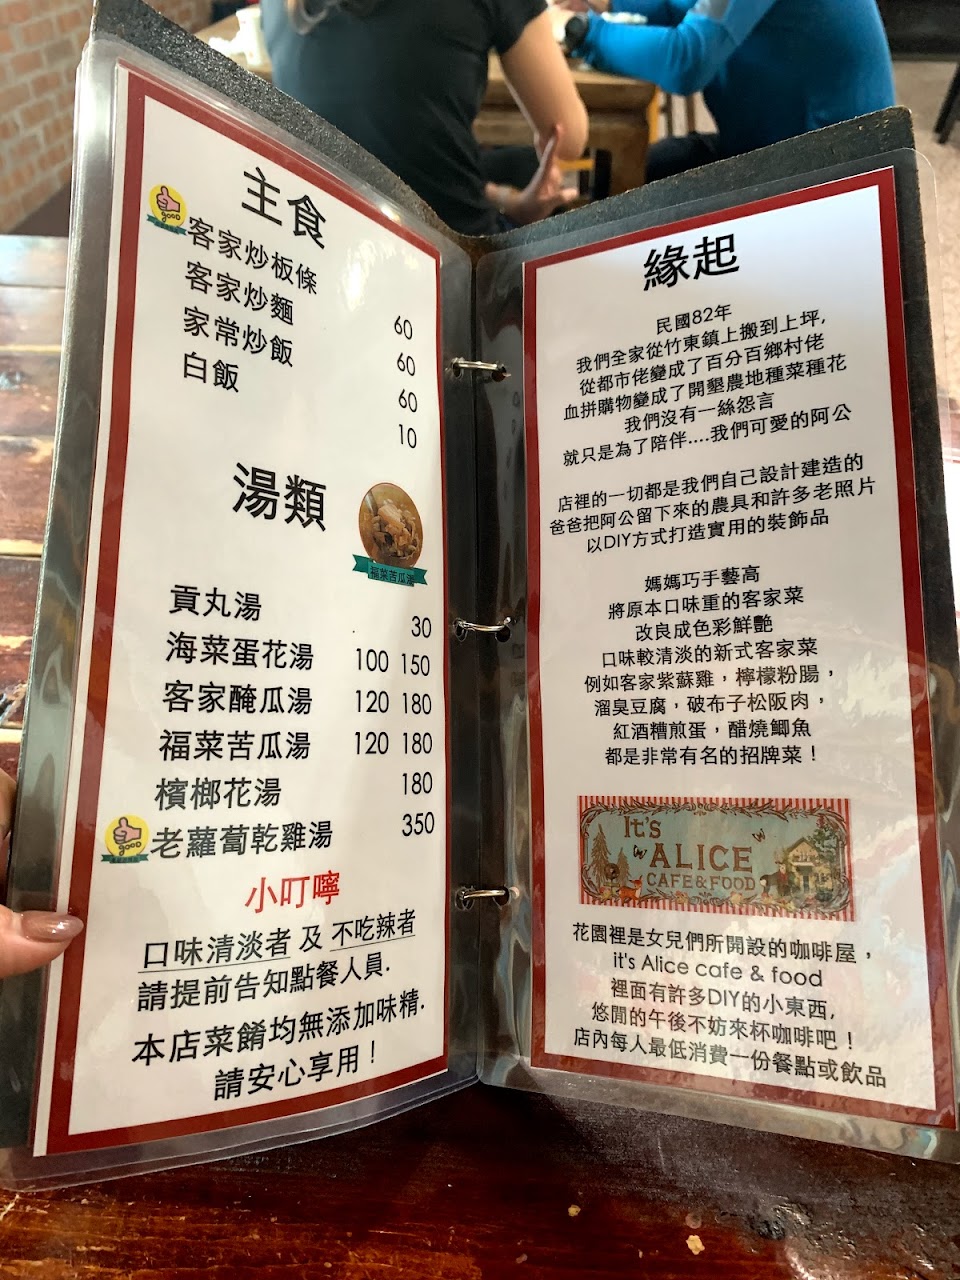 主食
good
客家炒板條 60
客家炒麵 60
家常炒飯 60
白飯 10
湯類
福菜苦瓜湯
貢丸湯 30
海菜蛋花湯 100 150
客家醃瓜湯 120 180
福菜苦瓜湯 120 180
檳榔花湯 180
good
老蘿蔔乾雞湯 350
小叮嚀
口味清淡者 及 不吃辣者
請提前告知點餐人員.
本店菜餚均無添加味精.
請安心享用！
緣起
民國82年
我們全家從竹東鎮上搬到上坪,
從都市佬變成了百分百鄉村佬
血拼購物變成了開墾農地種菜種花
我們沒有一絲怨言
就只是為了陪伴....我們可愛的阿公
店裡的一切都是我們自己設計建造的
爸爸把阿公留下來的農具和許多老照片
以DIY方式打造實用的裝飾品
媽媽巧手藝高
將原本口味重的客家菜
改良成色彩鮮艷
口味較清淡的新式客家菜
例如客家紫蘇雞，檸檬粉腸，
溜臭豆腐，破布子松阪肉，
紅酒糟煎蛋，醋燒鯽魚
都是非常有名的招牌菜！
It's
ALICE
CAFE&FOOD
花園裡是女兒們所開設的咖啡屋，
it's Alice cafe & food
裡面有許多DIY的小東西,
悠閒的午後不妨來杯咖啡吧！
店內每人最低消費一份餐點或飲品